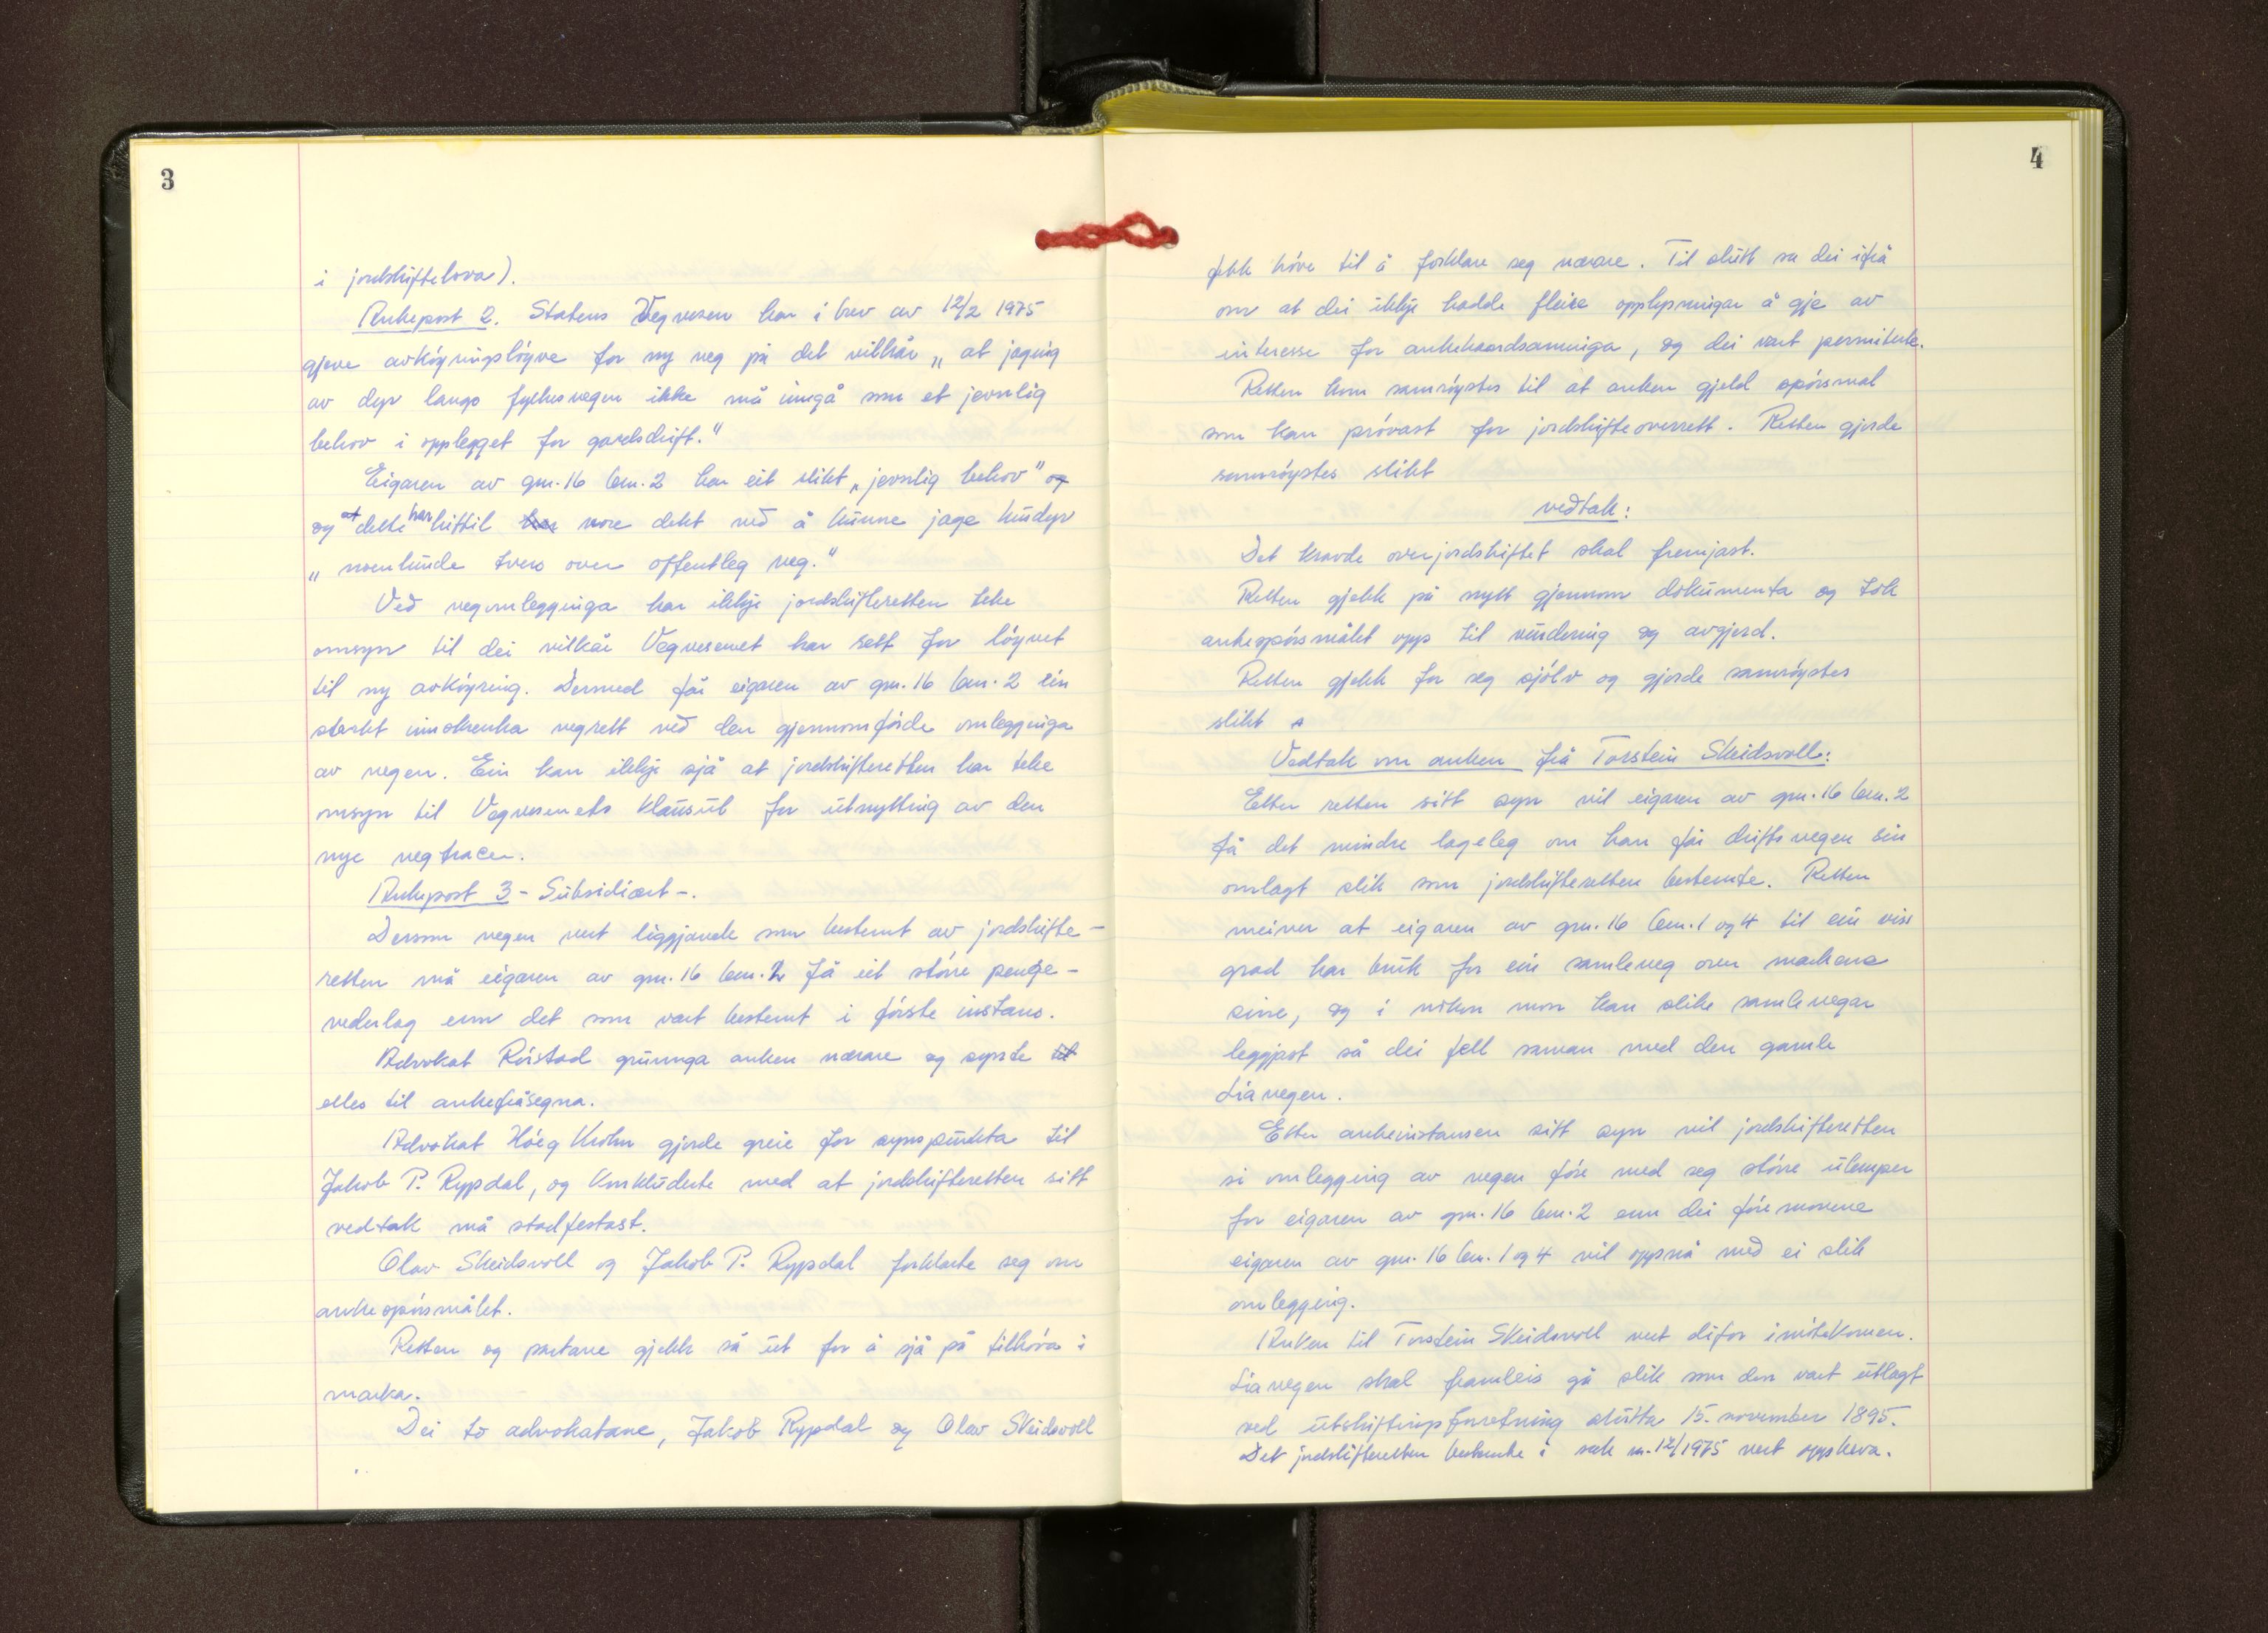 3
i jordskiftelova).
Ankepost 2. Statens Vegvesen har i brev av 12/2 1975
gjeve avköyringslöyve for ny veg på det vilkår „at jaging
av dyr langs fylkesvegen ikke må inngå som et jevnlig
behov i opplegget for gardsdrift."
Eigaren av gnr. 16 bnr. 2 har eit slikt „jevnlig behov" og
og at dette har hittil har vore dekt ved å kunne jage kudyr
„noenlunde tvers over offentleg veg."
Ved vegomlegginga har ikkje jordskifteretten teke
omsyn til dei vilkår Vegvesenet har sett for löyvet
til ny avköyring. Dermed får eigaren av gnr. 16 bnr. 2 ein
sterkt innskrenka vegrett ved den gjennomförde omlegginga
av vegen. Ein kan ikkje sjå at jordskifteretten har teke
omsyn til Vegvesenets klausul for utnytting av den
nye vegtraceen.
Ankepost 3 - Subsidiært -.
Dersom vegen vert liggjande som bestemt av jordskifte-
retten må eigaren av gnr. 16 bnr. 2 få eit större penge-
vederlag enn det som vart bestemt i förste instans.
Advokat Röistad grunnga anken nærare og synte til
elles til ankefråsegna.
Advokat Höeg Krohn gjorde greie for synspunkta til
Jakob P. Rypdal, og konkluderte med at jordskifteretten sitt
vedtak må stadfestast.
Olav Skeidsvoll og Jakob P. Rypdal forklarte seg om
ankespörsmålet.
Retten og partane gjekk så ut for å sjå på tilhöva i
marka.
Dei to advokatane, Jakob Rypdal og Olav Skeidsvoll
4
fekk höve til å forklare seg nærare. Til slutt sa dei ifrå
om at dei ikkje hadde fleire opplysningar å gje av
interesse for ankehandsaminga, og dei vart permiterte.
Retten kom samröystes til at anken gjeld spörsmål
som kan prövast for jordskifteoverrett. Retten gjorde
samröystes slikt
vedtak:
Det kravde overjordskiftet skal fremjast.
Retten gjekk på nytt gjennom dokumenta og tok
ankespörsmålet opp til vurdering og avgjerd.
Retten gjekk for seg sjölv og gjorde samröystes
slikt
Vedtak om anken frå Torstein Skeidsvoll:
Etter retten sitt syn vil eigaren av gnr. 16 bnr. 2
få det mindre lageleg om han får driftsvegen sin
omlagt slik som jordskifteretten bestemte. Retten
meiner at eigaren av gnr. 16 bnr. 1 og 4 til ein viss
grad har bruk for ein samleveg over markene
sine, og i nokon mon kan slike samlevegar
leggjast så dei fell saman med den gamle
Liavegen.
Etter ankeinstansen sitt syn vil jordskifteretten
si omlegging av vegen före med seg större ulemper
for eigaren av gnr. 16 bnr. 2 enn dei föremonene
eigaren av gnr. 16 bnr. 1 og 4 vil oppnå med ei slik
omlegging.
Anken til Torstein Skeidsvoll vert difor imötekomen.
Liavegen skal framleis gå slik som den vart utlagt
ved utskiftingsforretning slutta 15. november 1895.
Det jordskifteretten bestemte i sak nr. 12/1975 vert oppheva.